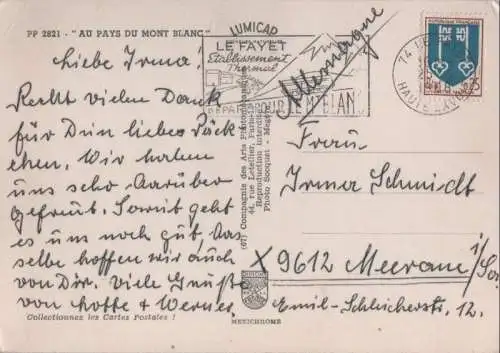 PP 2821 - "AU PAYS DU MONT BLANC"
LUMICAP
LE FAYET
Etablissement
Thermal
DEPART POUR LE MT BLANC
HAUTE SAVOIE
25
Allemagne
Liebe Irma!
Recht vielen Dank
für Dein liebes Päck
chen. Wir haben
uns sehr darüber
gefreut. Soweit geht
es uns noch gut, das
selbe hoffen wir auch
von Dir. Viele Grüße
von Lotte + Werner.
Collectionnez les Cartes Postales !
(67) Compagnie des Arts Photomécaniques
44, rue Letellier, Paris
Reproduction interdite
Photo Socquet - Megève
MEXICHROME
Frau
Irma Schmidt
X 9612 Meerane i/Sa.
Emil-Schleicherstr. 12.